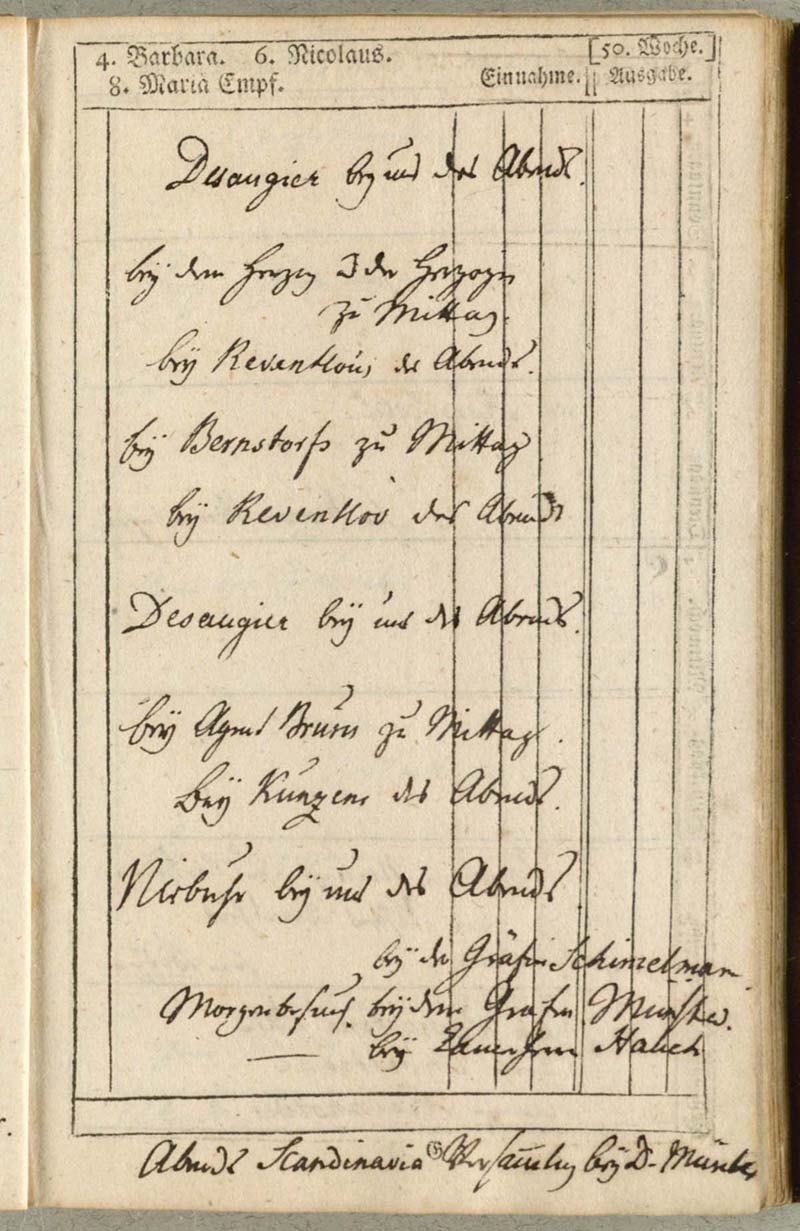 4. Barbara. 6. Nicolaus. [50. Woche.]
8. Mariä Empf. Einnahme. || Ausgabe.
Desaugier bey uns des Abends.
bey dem Herzog u der Herzogin
zu Mittag.
bey Reventlou's des Abends.
bey Bernstorfs zu Mittag
bey Reventlov des Abends
Desaugier bey uns des Abends.
bey Agent Bruun zu Mittag.
Bey Kunzens des Abends.
Niebuhr bey uns des Abends
bey der Gräfin Schimelman
Morgenbesuch. bey dem Grafen Munster.
— bey Hauch
Abends Scandinavia Versamlung bey D. Münter